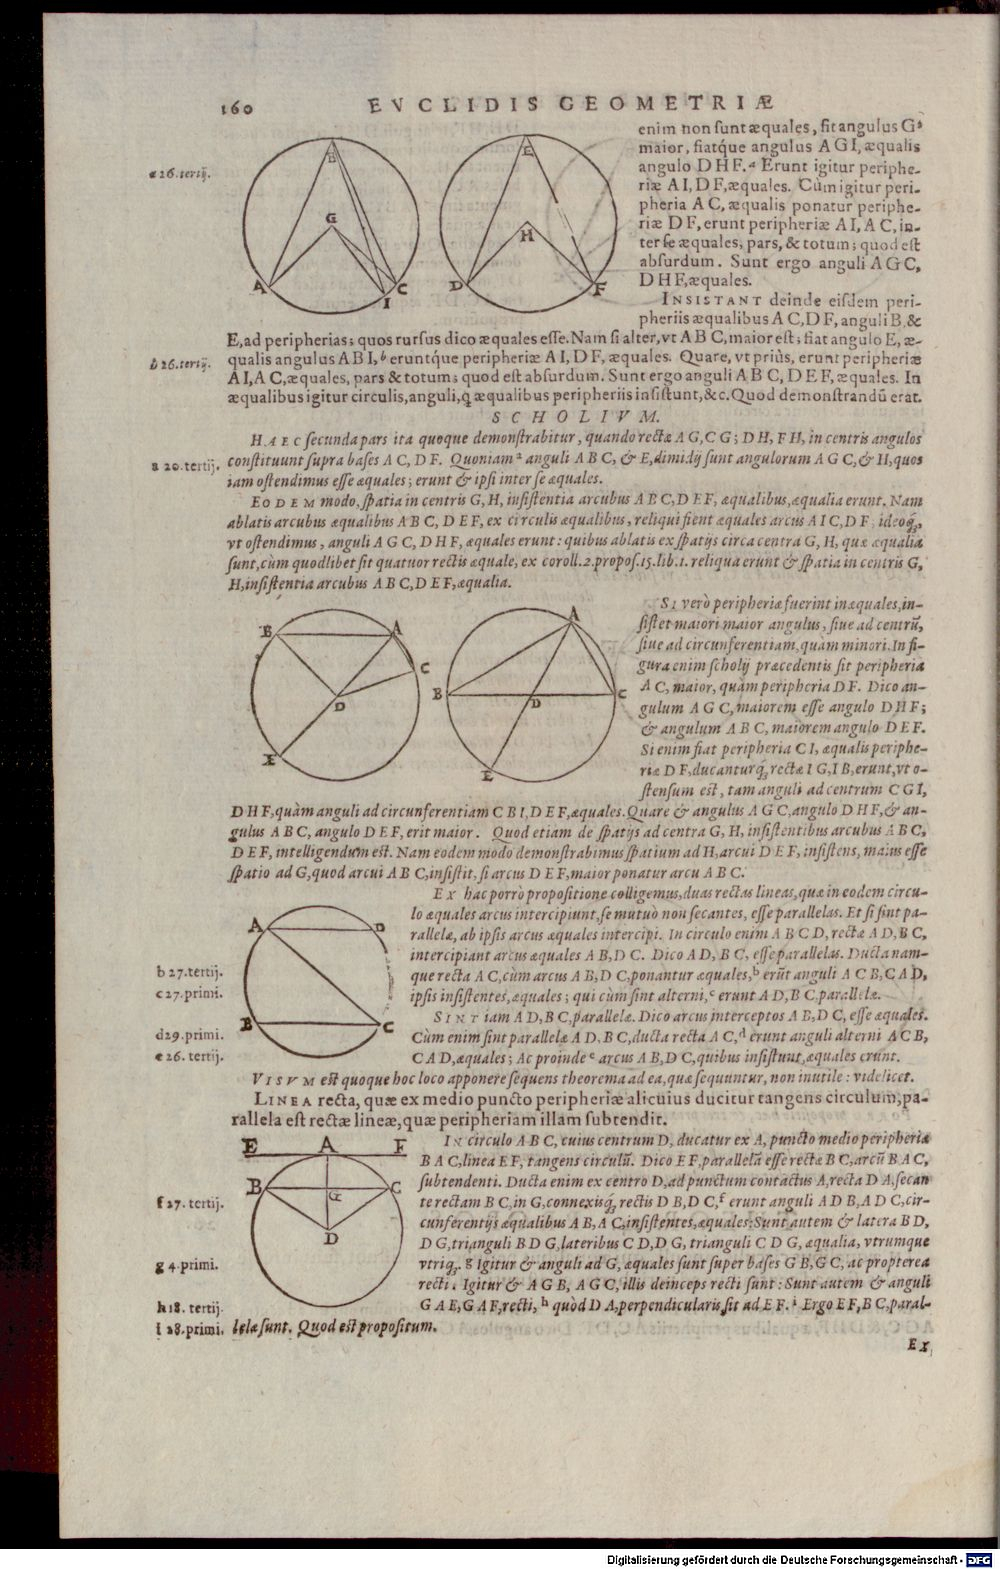 160 EVCLIDIS GEOMETRIÆ
enim non ſunt æquales, ſit angulus G
maior, fiatq́ue angulus A G I, æqualis
a 26. tertij.
angulo D H F. ª Erunt igitur periphe-
riæ A I, D F, æquales. Cùm igitur peri-
pheria A C, æqualis ponatur periphe-
riæ D F, erunt peripheriæ A I, A C, in-
ter ſe æquales, pars, & totum; quod eſt
abſurdum. Sunt ergo anguli A G C,
D H F, æquales.
INSISTANT deinde eiſdem peri-
pheriis æqualibus A C, D F, anguli B, &
B
G
A
I
C
E
H
D
F
E, ad peripherias; quos rurſus dico æquales eſſe. Nam ſi alter, vt A B C, maior eſt; fiat angulo E, æ-
b 26. tertij.
qualis angulus A B I, ᵇ eruntq́ue peripheriæ A I, D F, æquales. Quare, vt priùs, erunt peripheriæ
A I, A C, æquales, pars & totum; quod eſt abſurdum. Sunt ergo anguli A B C, D E F, æquales. In
æqualibus igitur circulis, anguli, q̃ æqualibus peripheriis inſiſtunt, &c. Quod demonſtrandũ erat.
SCHOLIVM.
HAEC ſecunda pars ita quoque demonſtrabitur, quando rectæ A G, C G; D H, F H, in centris angulos
a 20. tertij.
conſtituunt ſupra baſes A C, D F. Quoniam ª anguli A B C, & E, dimidij ſunt angulorum A G C, & H, quos
iam oſtendimus eſſe æquales; erunt & ipſi inter ſe æquales.
EODEM modo, ſpatia in centris G, H, inſiſtentia arcubus A B C, D E F, æqualibus, æqualia erunt. Nam
ablatis arcubus æqualibus A B C, D E F, ex circulis æqualibus, reliqui fient æquales arcus A I C, D F, ideoq́₃,
vt oſtendimus, anguli A G C, D H F, æquales erunt: quibus ablatis ex ſpatijs circa centra G, H, quæ æqualia
ſunt, cùm quodlibet ſit quatuor rectis æquale, ex coroll. 2. propoſ. 15. lib. 1. reliqua erunt & ſpatia in centris G,
H, inſiſtentia arcubus A B C, D E F, æqualia.
SI verò peripheriæ fuerint inæquales, in-
ſiſtet maiori maior angulus, ſiue ad centrũ,
ſiue ad circunferentiam, quàm minori. In fi-
gura enim ſcholij præcedentis ſit peripheria
A C, maior, quàm peripheria D F. Dico an-
gulum A G C, maiorem eſſe angulo D H F;
& angulum A B C, maiorem angulo D E F.
Si enim fiat peripheria C I, æqualis periphe-
riæ D F, ducanturq́₃ rectæ I G, I B, erunt, vt o-
ſtenſum eſt, tam anguli ad centrum C G I,
B
A
C
D
E
A
B
D
C
E
D H F, quàm anguli ad circunferentiam C B I, D E F, æquales. Quare & angulus A G C, angulo D H F, & an-
gulus A B C, angulo D E F, erit maior. Quod etiam de ſpatijs ad centra G, H, inſiſtentibus arcubus A B C,
D E F, intelligendum eſt. Nam eodem modo demonſtrabimus ſpatium ad H, arcui D E F, inſiſtens, maius eſſe
ſpatio ad G, quod arcui A B C, inſiſtit, ſi arcus D E F, maior ponatur arcu A B C.
EX hac porrò propoſitione colligemus, duas rectas lineas, quæ in eodem circu-
lo æquales arcus intercipiunt, ſe mutuò non ſecantes, eſſe parallelas. Et ſi ſint pa-
rallelæ, ab ipſis arcus æquales intercipi. In circulo enim A B C D, rectæ A D, B C,
intercipiant arcus æquales A B, D C. Dico A D, B C, eſſe parallelas. Ducta nam-
b 27. tertij.
que recta A C, cùm arcus A B, D C, ponantur æquales, ᵇ erũt anguli A C B, C A D,
c 27. primi.
ipſis inſiſtentes, æquales; qui cùm ſint alterni, ᶜ erunt A D, B C, parallelæ.
SINT iam A D, B C, parallelæ. Dico arcus interceptos A B, D C, eſſe æquales.
d 29. primi.
Cùm enim ſint parallelæ A D, B C, ducta recta A C, ᵈ erunt anguli alterni A C B,
e 26. tertij.
C A D, æquales; Ac proinde ᵉ arcus A B, D C, quibus inſiſtunt, æquales erunt.
A
D
B
C
VISVM eſt quoque hoc loco apponere ſequens theorema ad ea, quæ ſequuntur, non inutile: videlicet.
LINEA recta, quæ ex medio puncto peripheriæ alicuius ducitur tangens circulum, pa-
rallela eſt rectæ lineæ, quæ peripheriam illam ſubtendit.
IN circulo A B C, cuius centrum D, ducatur ex A, puncto medio peripheriæ
B A C, linea E F, tangens circulũ. Dico E F, parallelã eſſe rectæ B C, arcũ B A C,
ſubtendenti. Ducta enim ex centro D, ad punctum contactus A, recta D A, ſecan
f 27. tertij.
te rectam B C, in G, connexisq́₃ rectis D B, D C, ᶠ erunt anguli A D B, A D C, cir-
cunferentijs æqualibus A B, A C, inſiſtentes, æquales: Sunt autem & latera B D,
D G, trianguli B D G, lateribus C D, D G, trianguli C D G, æqualia, vtrumque
g 4. primi.
vtriq́₃. ᵍ Igitur & anguli ad G, æquales ſunt ſuper baſes G B, G C, ac propterea
recti. Igitur & A G B, A G C, illis deinceps recti ſunt: Sunt autem & anguli
h 18. tertij.
G A E, G A F, recti, ʰ quòd D A, perpendicularis ſit ad E F. ⁱ Ergo E F, B C, paral-
i 28. primi.
lelæ ſunt. Quod eſt propoſitum.
E
A
F
B
G
C
D
Ex
Digitalisierung gefördert durch die Deutsche Forschungsgemeinschaft - DFG